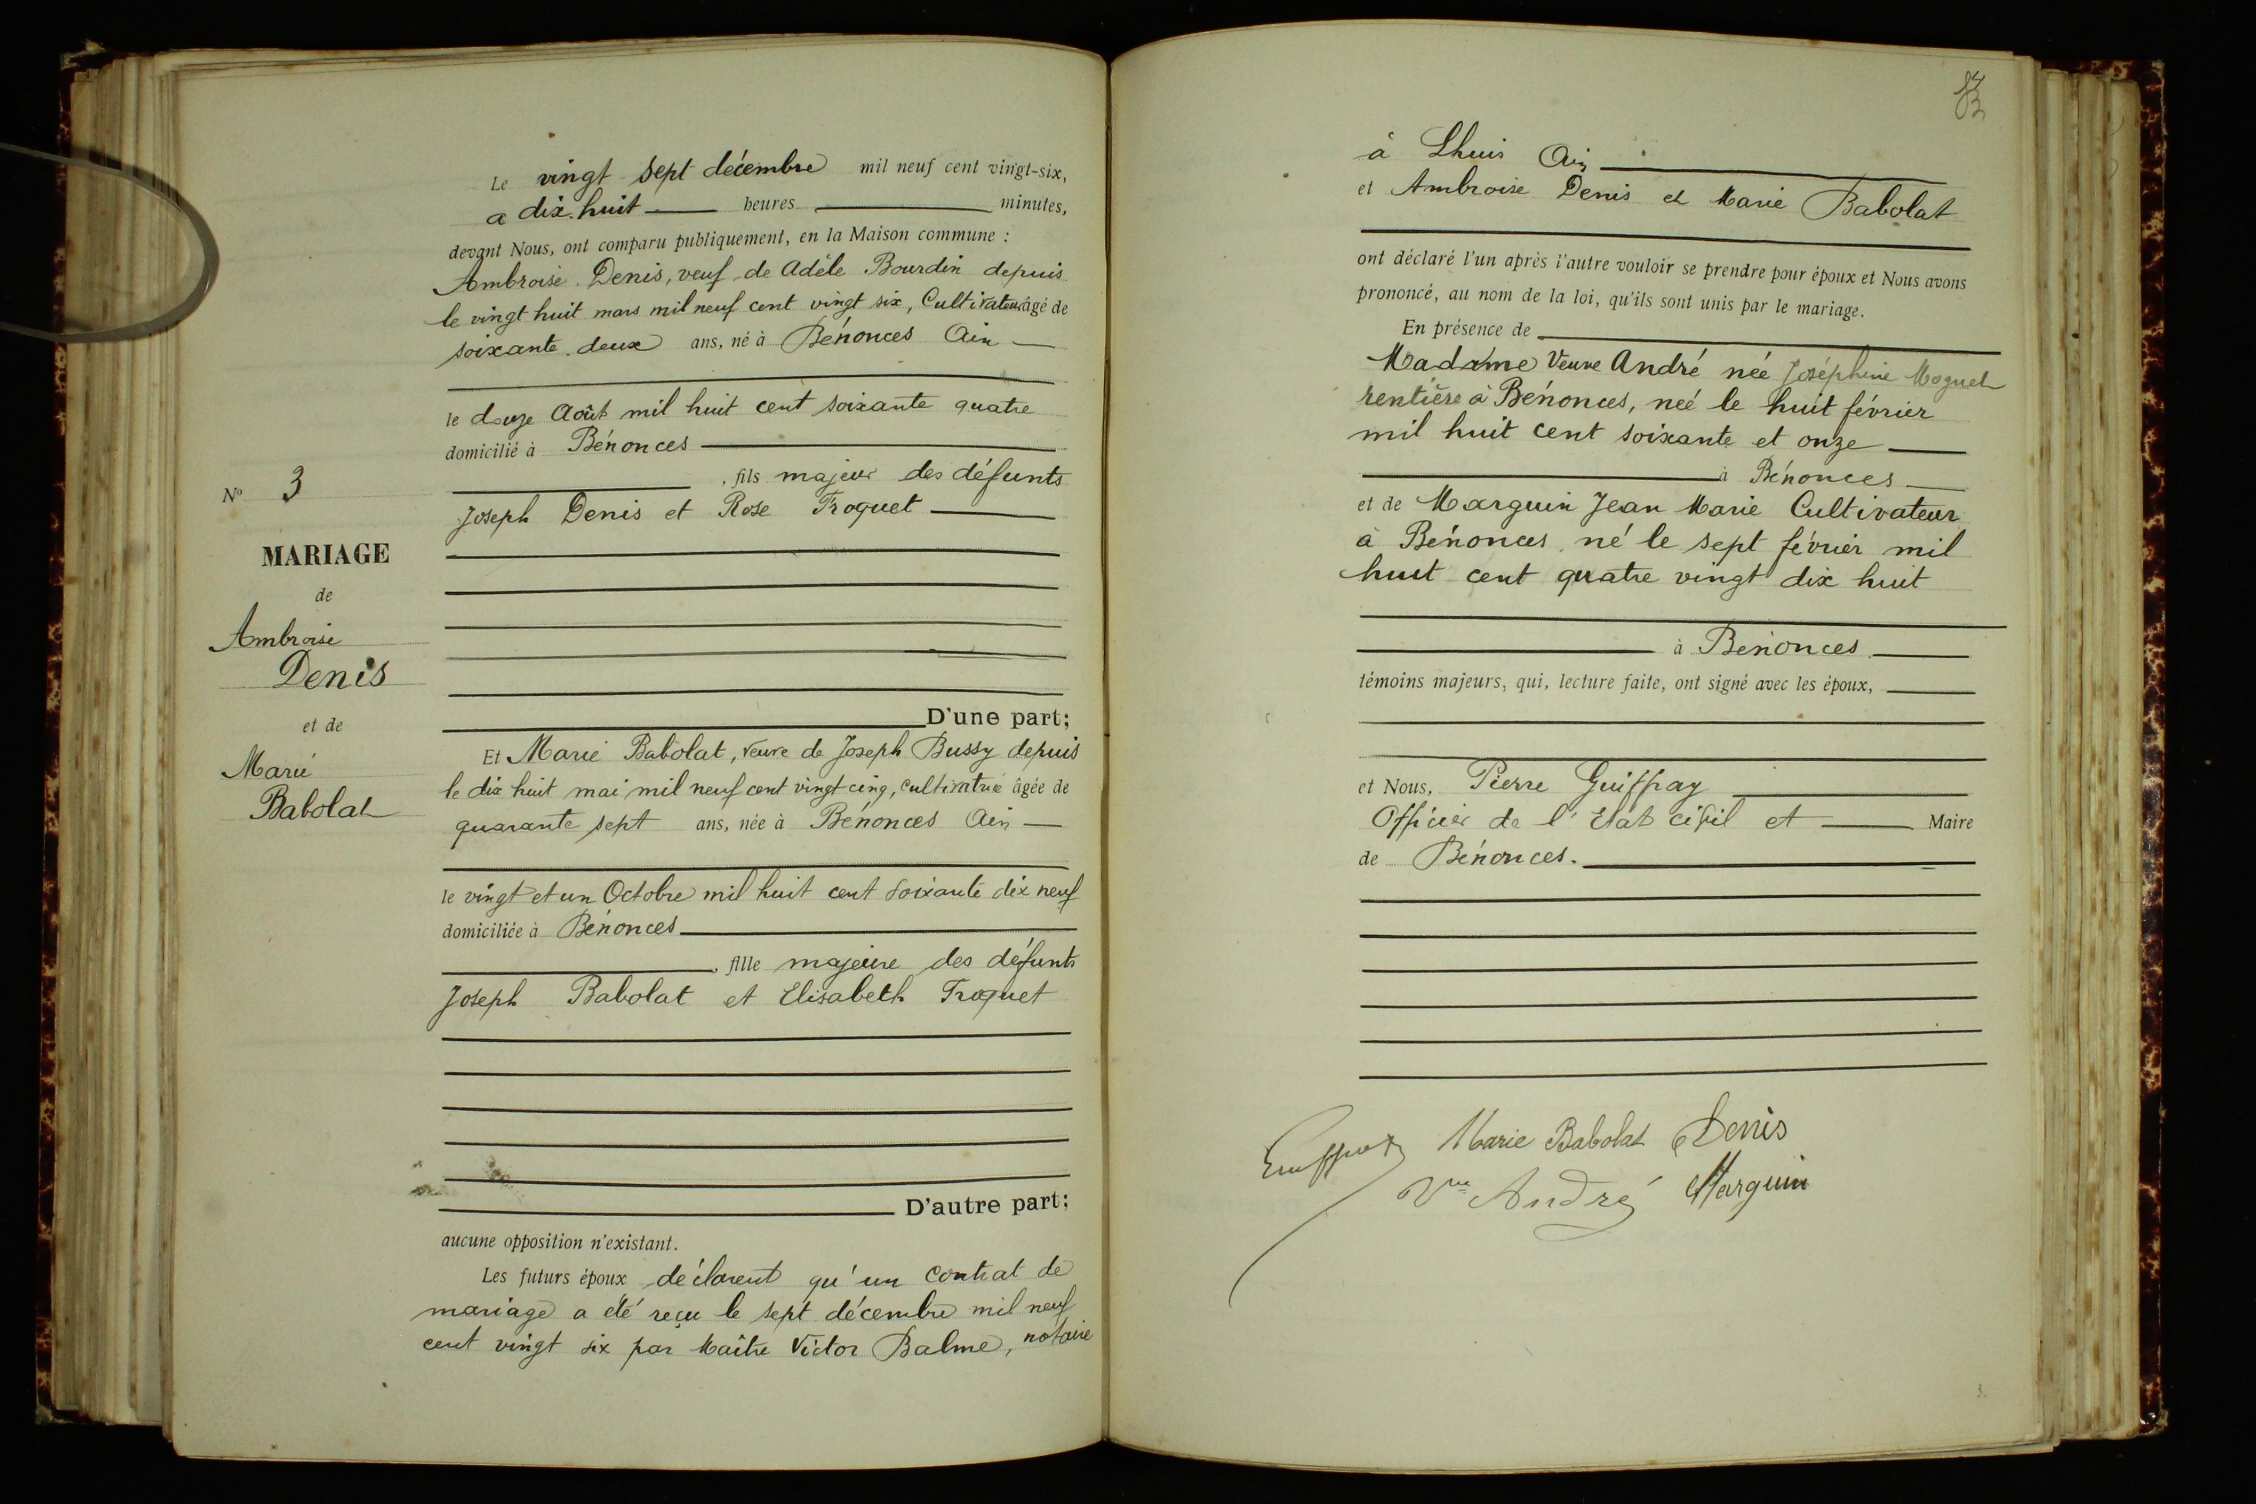 Le vingt sept décembre mil neuf cent vingt-six,
a dix huit heures minutes,
devant Nous, ont comparu publiquement, en la Maison commune :
Ambroise Denis, veuf de Adèle Bourdin depuis
le vingt huit mars mil neuf cent vingt six, Cultivateur âgé de
soixante deux ans, né à Bénonces Ain
le douze Août mil huit cent soixante quatre
domicilié à Bénonces
, fils majeur des défunts
Joseph Denis et Rose Troquet
D'une part;
Nº 3
MARIAGE
de
Ambroise
Denis
et de
Marie
Babolat
Et Marie Babolat, veuve de Joseph Bussy depuis
le dix huit mai mil neuf cent vingt cinq, cultivatrice âgée de
quarante sept ans, née à Bénonces Ain
le vingt et un Octobre mil huit cent soixante dix neuf
domiciliée à Bénonces
, fille majeure des défunts
Joseph Babolat et Elisabeth Troquet
D'autre part;
aucune opposition n'existant.
Les futurs époux déclarent qu'un contrat de
mariage a été reçu le sept décembre mil neuf
cent vingt six par Maître Victor Balme, notaire
à Lhuis Ain
et Ambroise Denis et Marie Babolat
ont déclaré l'un après l'autre vouloir se prendre pour époux et Nous avons
prononcé, au nom de la loi, qu'ils sont unis par le mariage.
En présence de
Madame Veuve André née Joséphine Moguet
rentière à Bénonces, née le huit février
mil huit cent soixante et onze
à Bénonces
et de Marguin Jean Marie Cultivateur
à Bénonces né le sept février mil
huit cent quatre vingt dix huit
à Bénonces
témoins majeurs, qui, lecture faite, ont signé avec les époux,
et Nous, Pierre Guiffray
Officier de l'Etat civil et Maire
de Bénonces.
Marie Babolat Denis
Vve André Marguin